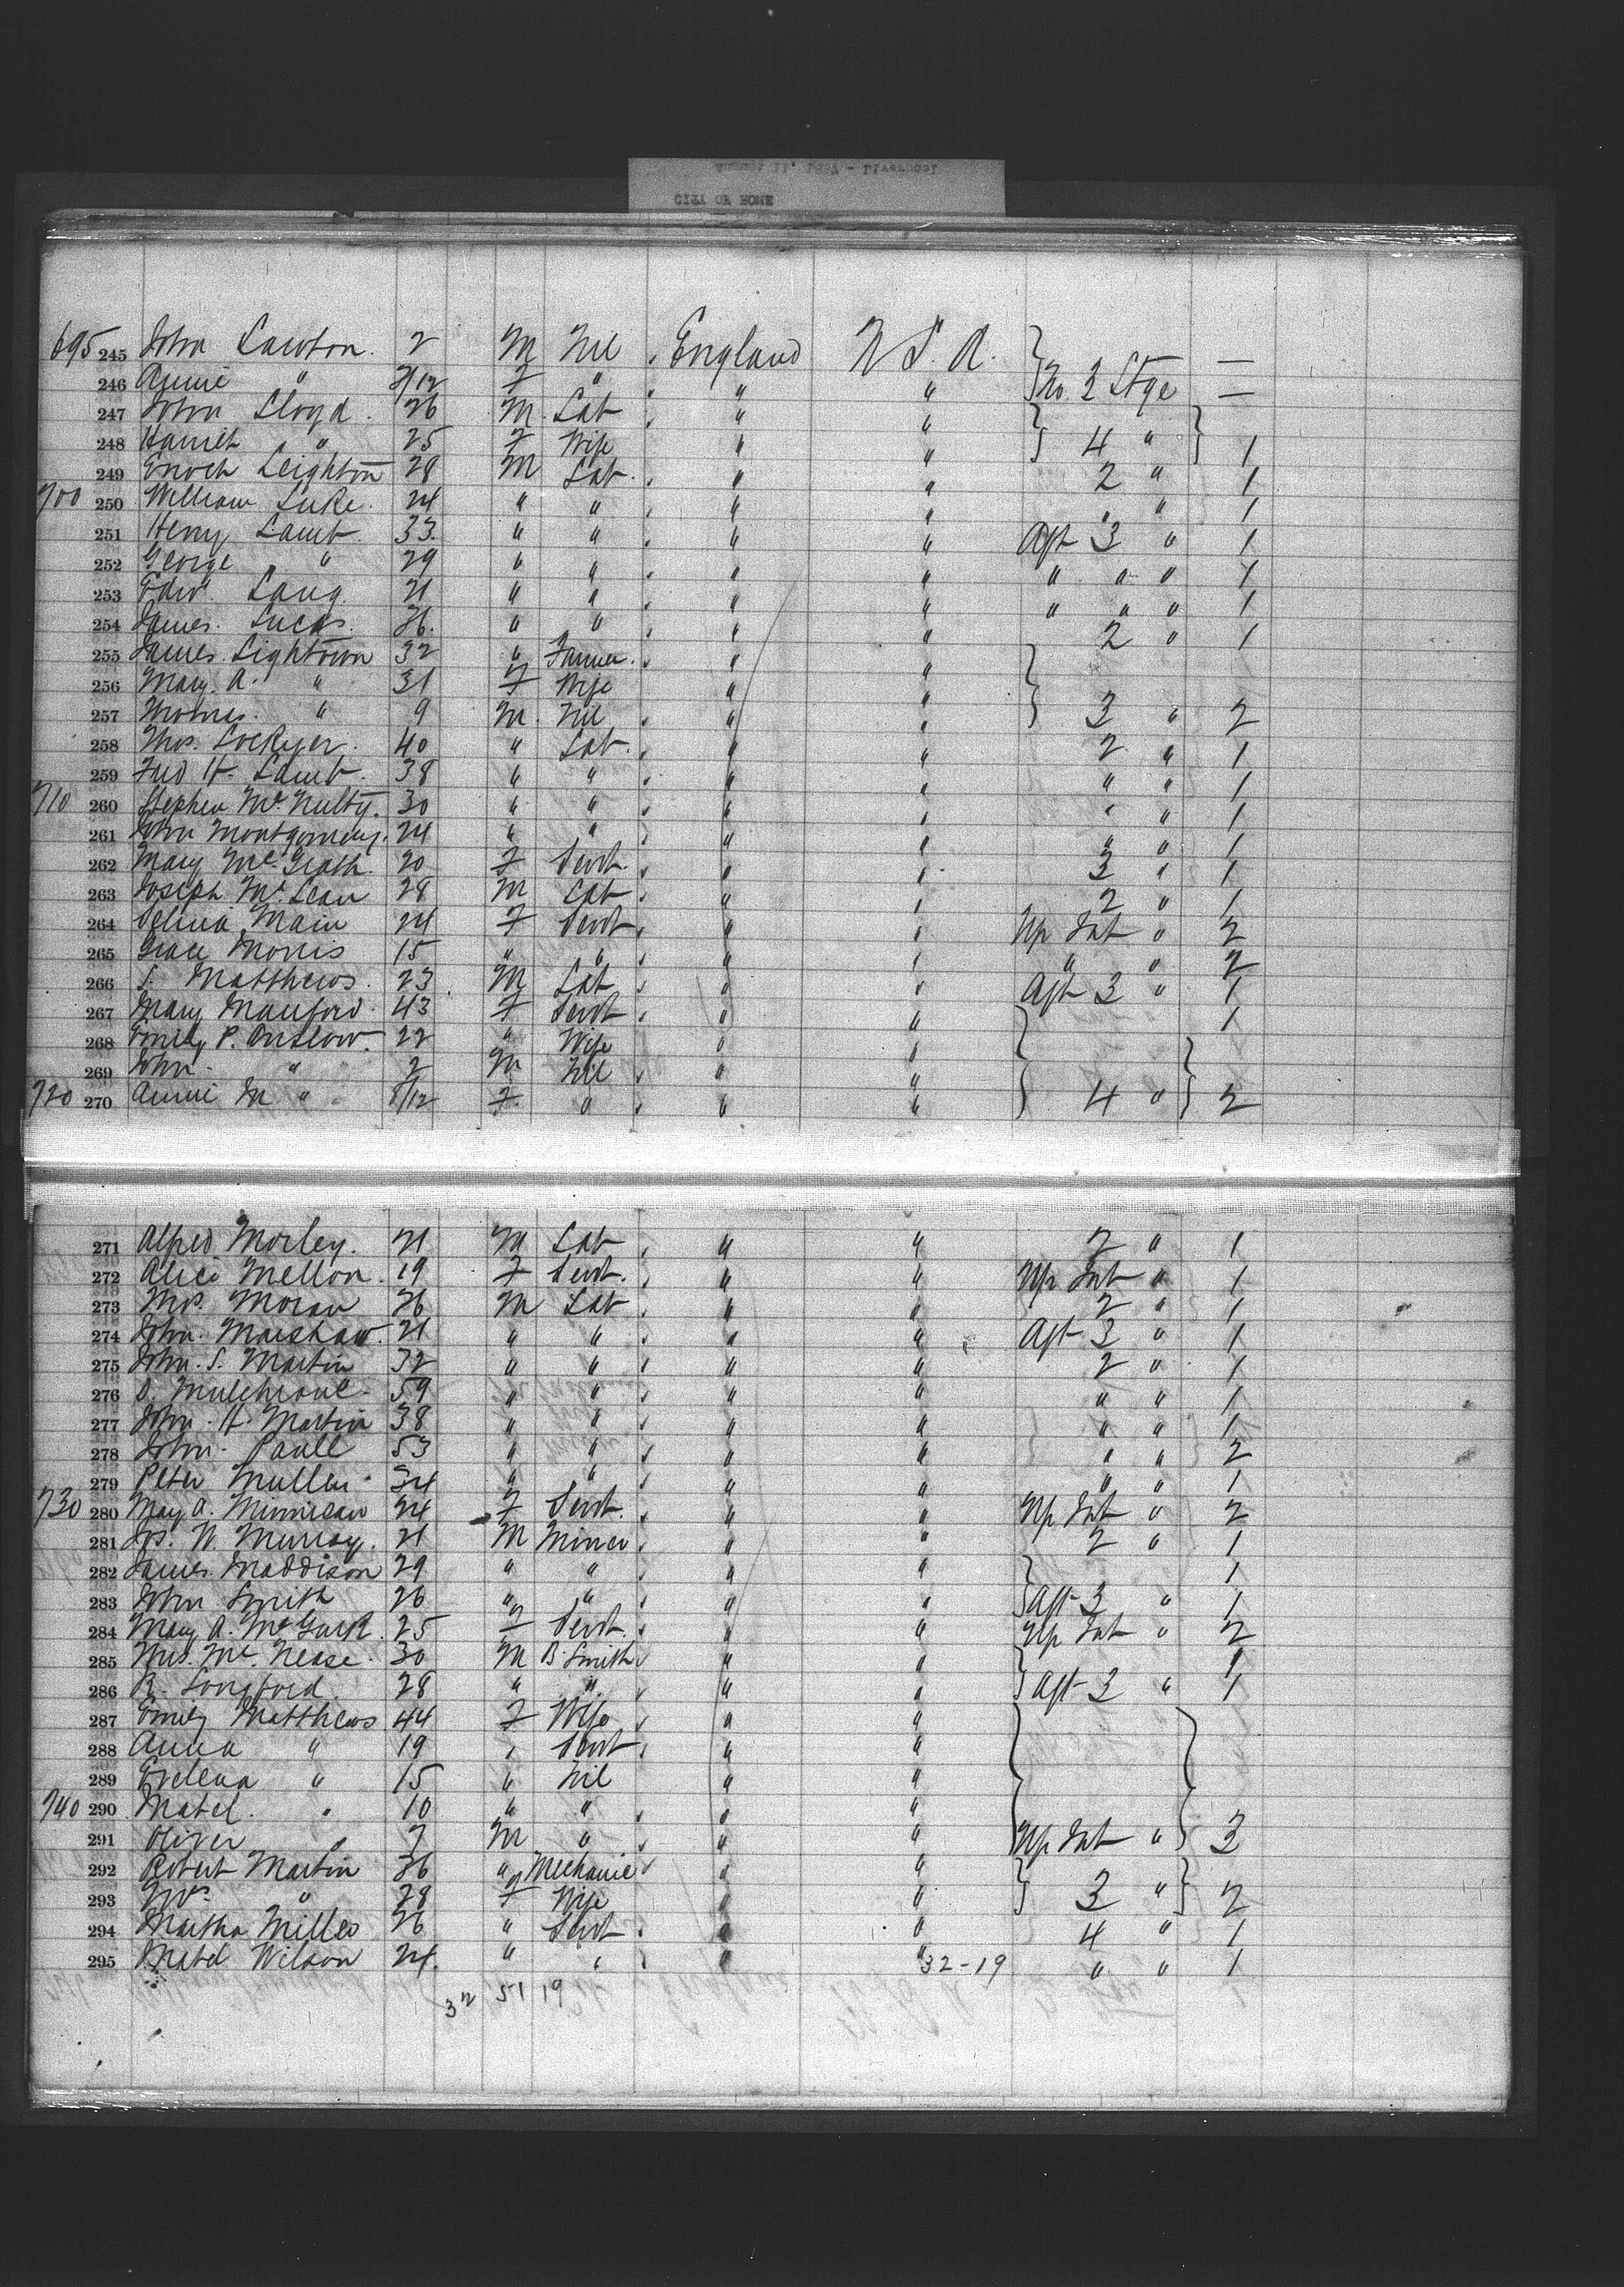 CITY OF ROME
695 245 John Lawton. 2 M Nil England U S. A. —
246 Annie " 2/12 F " " " No. 3 Stge —
247 John Lloyd. 26 M. Lab " "
248 Harriet " 25 F Wife " " 4 " 1
249 Enoch Leighton 28 M Lab. " " 2 " 1
700 250 William Luke. 24 " " " " " " 1
251 Henry Lamb. 33. " " " " Aft 3 " 1
252 George " 29 " " " " " " " 1
253 Edwd. Lang. 21 " " " " " " " 1
254 James. Lucas. 36. " " " " 2 " 1
255 James. Lightown 32 " Farmer. " "
256 Mary. A. " 31 F Wife " "
257 Thomas. " 9 M. Nil " " 3 " 2
258 Thos. Lockyer. 40 " Lab. " " 2 " 1
259 Fred H. Lamb. 38 " " " " " " 1
710 260 Stephen Mc. Nulty. 30 " " " " " " 1
261 John Montgomery. 24 " " " " " " 1
262 Mary Mc. Grath. 20 F Servt. " " 3 " 1
263 Joseph Mc. Lean 28 M Lab " " 2 " 1
264 Selina Main 24 F Servt " " Up Int " 2
265 Grace Morris 15 " " " " " " 2
266 S. Matthews. 23 M Lab " " Aft 3 " 1
267 Mary Manford. 43 F Servt " " 1
268 Emily P. Onslow. 22 " Wife " "
269 John. " 2 M Nil " "
720 270 Annie M " 8/12 F. " " " 4 " 2
271 Alfred Morley. 21 M Lab " " 2 " 1
272 Alice Mellon. 19 F Servt. " " Up Int " 1
273 Thos. Moran 26 M Lab " " 2 " 1
274 John. Marshaw. 21 " " " " Aft 3 " 1
275 John. S. Martin 32 " " " " 2 " 1
276 59 " " " " " " 1
277 John. H. Martin 38 " " " " " " 1
278 John. Paull 53 " " " " " " 2
279 Peter Mullen 34 " " " " " " 1
730 280 May A. 24 F Servt. " " Up Int " 2
281 Js. W. Murray. 21 M Miner " " 2 " 1
282 James. Maddison 29 " " " " 1
283 John Smith 26 " " " " Aft 3 " 1
284 Mary A. McGurk. 25 F Servt. " " Up Int " 2
285 Mc. Nease. 30 M B. Smith " " 1
286 R. Longford. 28 " " " " Aft 3 " 1
287 Emily Matthews 44 F Wife " "
288 Anna " 19 " Servt " "
289 Evelena " 15 " Nil " "
740 290 Mabel. " 10 " " " "
291 Oliver " 7 M " " " Up Int " 3
292 Robert Martin 36 " Mechanic " "
293 Mrs. " 28 F Wife " " 3 " 2
294 Martha Miller 26 " Servt " " 4 " 1
295 Mabel Wilson 24. " " " " " " 1
32-19
32 51 19